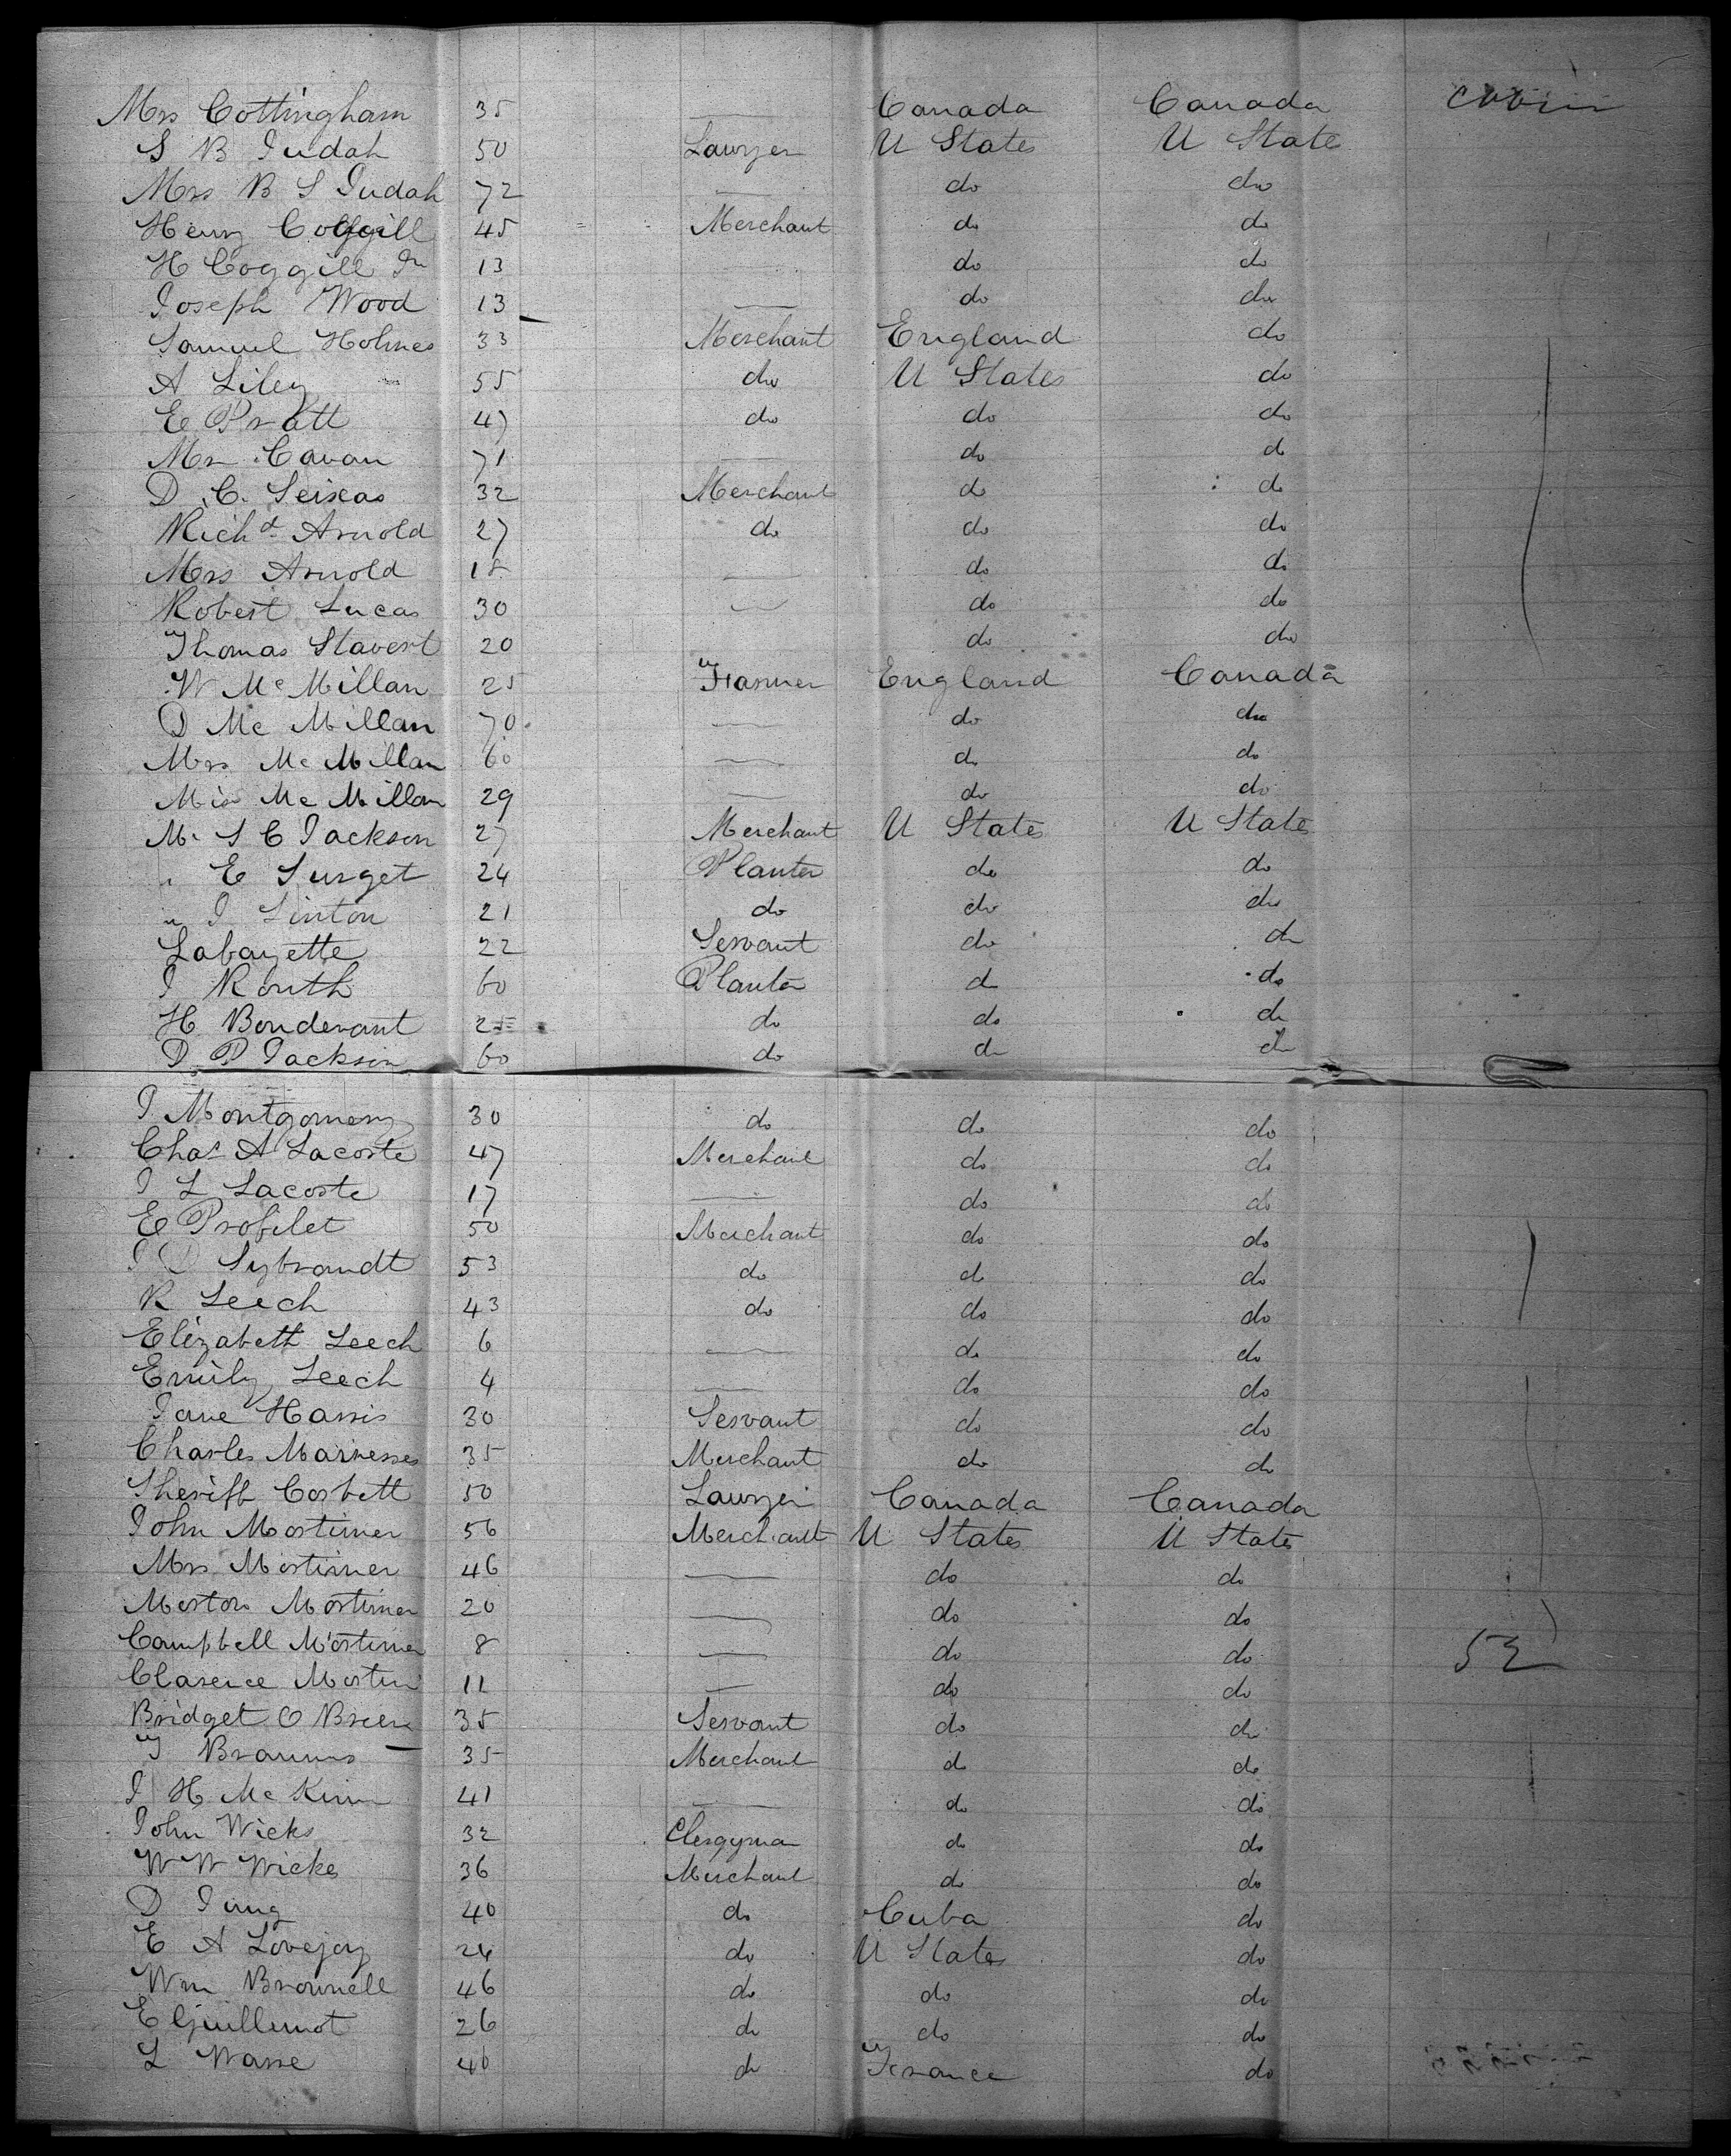 Mrs Cottingham 35 — Canada Canada cabin
S B Judah 50 Lawyer U States U State
Mrs B S Judah 72 — do do
Henry Coggill 45 Merchant do do
H Coggill Jr 13 do do
Joseph Wood 13 — do do
Samuel Holmes 33 Merchant England do
A Liley 55 do U States do
E Pratt 47 do do do
Mr Cavan 71 — do do
D. C. Seixas 32 Merchant do do
Richd Arnold 27 do do do
Mrs Arnold 18 — do do
Robert Lucas 30 — do do
Thomas Stavert 20 do do
W McMillan 25 Farmer England Canada
D McMillan 70 — do do
Mrs McMillan 60 — do do
Miss McMillan 29 — do do
Mr S C Jackson 27 Merchant U States U States
" E Surget 24 Planter do do
" J Linton 21 do do do
Lafayette 22 Servant do do
J Routh 60 Planter do do
H Bondevant 25 do do do
D. P Jackson 60 do do do
J Montgomery 30 do do do
Chas A Lacoste 47 Merchant do do
J L Lacoste 17 — do do
E Profilet 50 Merchant do do
J D Sybrandt 53 do do do
R Leech 43 do do do
Elizabeth Leech 6 — do do
Emily Leech 4 — do do
Jane Harris 30 Servant do do
Charles 35 Merchant do do
Sheriff Corbett 50 Lawyer Canada Canada
John Mortimer 56 Merchant U States U States
Mrs Mortimer 46 — do do
Morton Mortimer 20 — do do
Campbell Mortimer 8 — do do 52
Clarence Mortim 11 — do do
Bridget O Brien 35 Servant do do
35 Merchant do do
J H McKim 41 — do do
John Wicks 32 Clergyman do do
W W Wicks 36 Merchant do do
D Jung 40 do Cuba do
E A Lovejoy 24 do U States do
Wm Brownell 46 do do do
E Guillemot 26 do do do
L Wasse 40 do France do